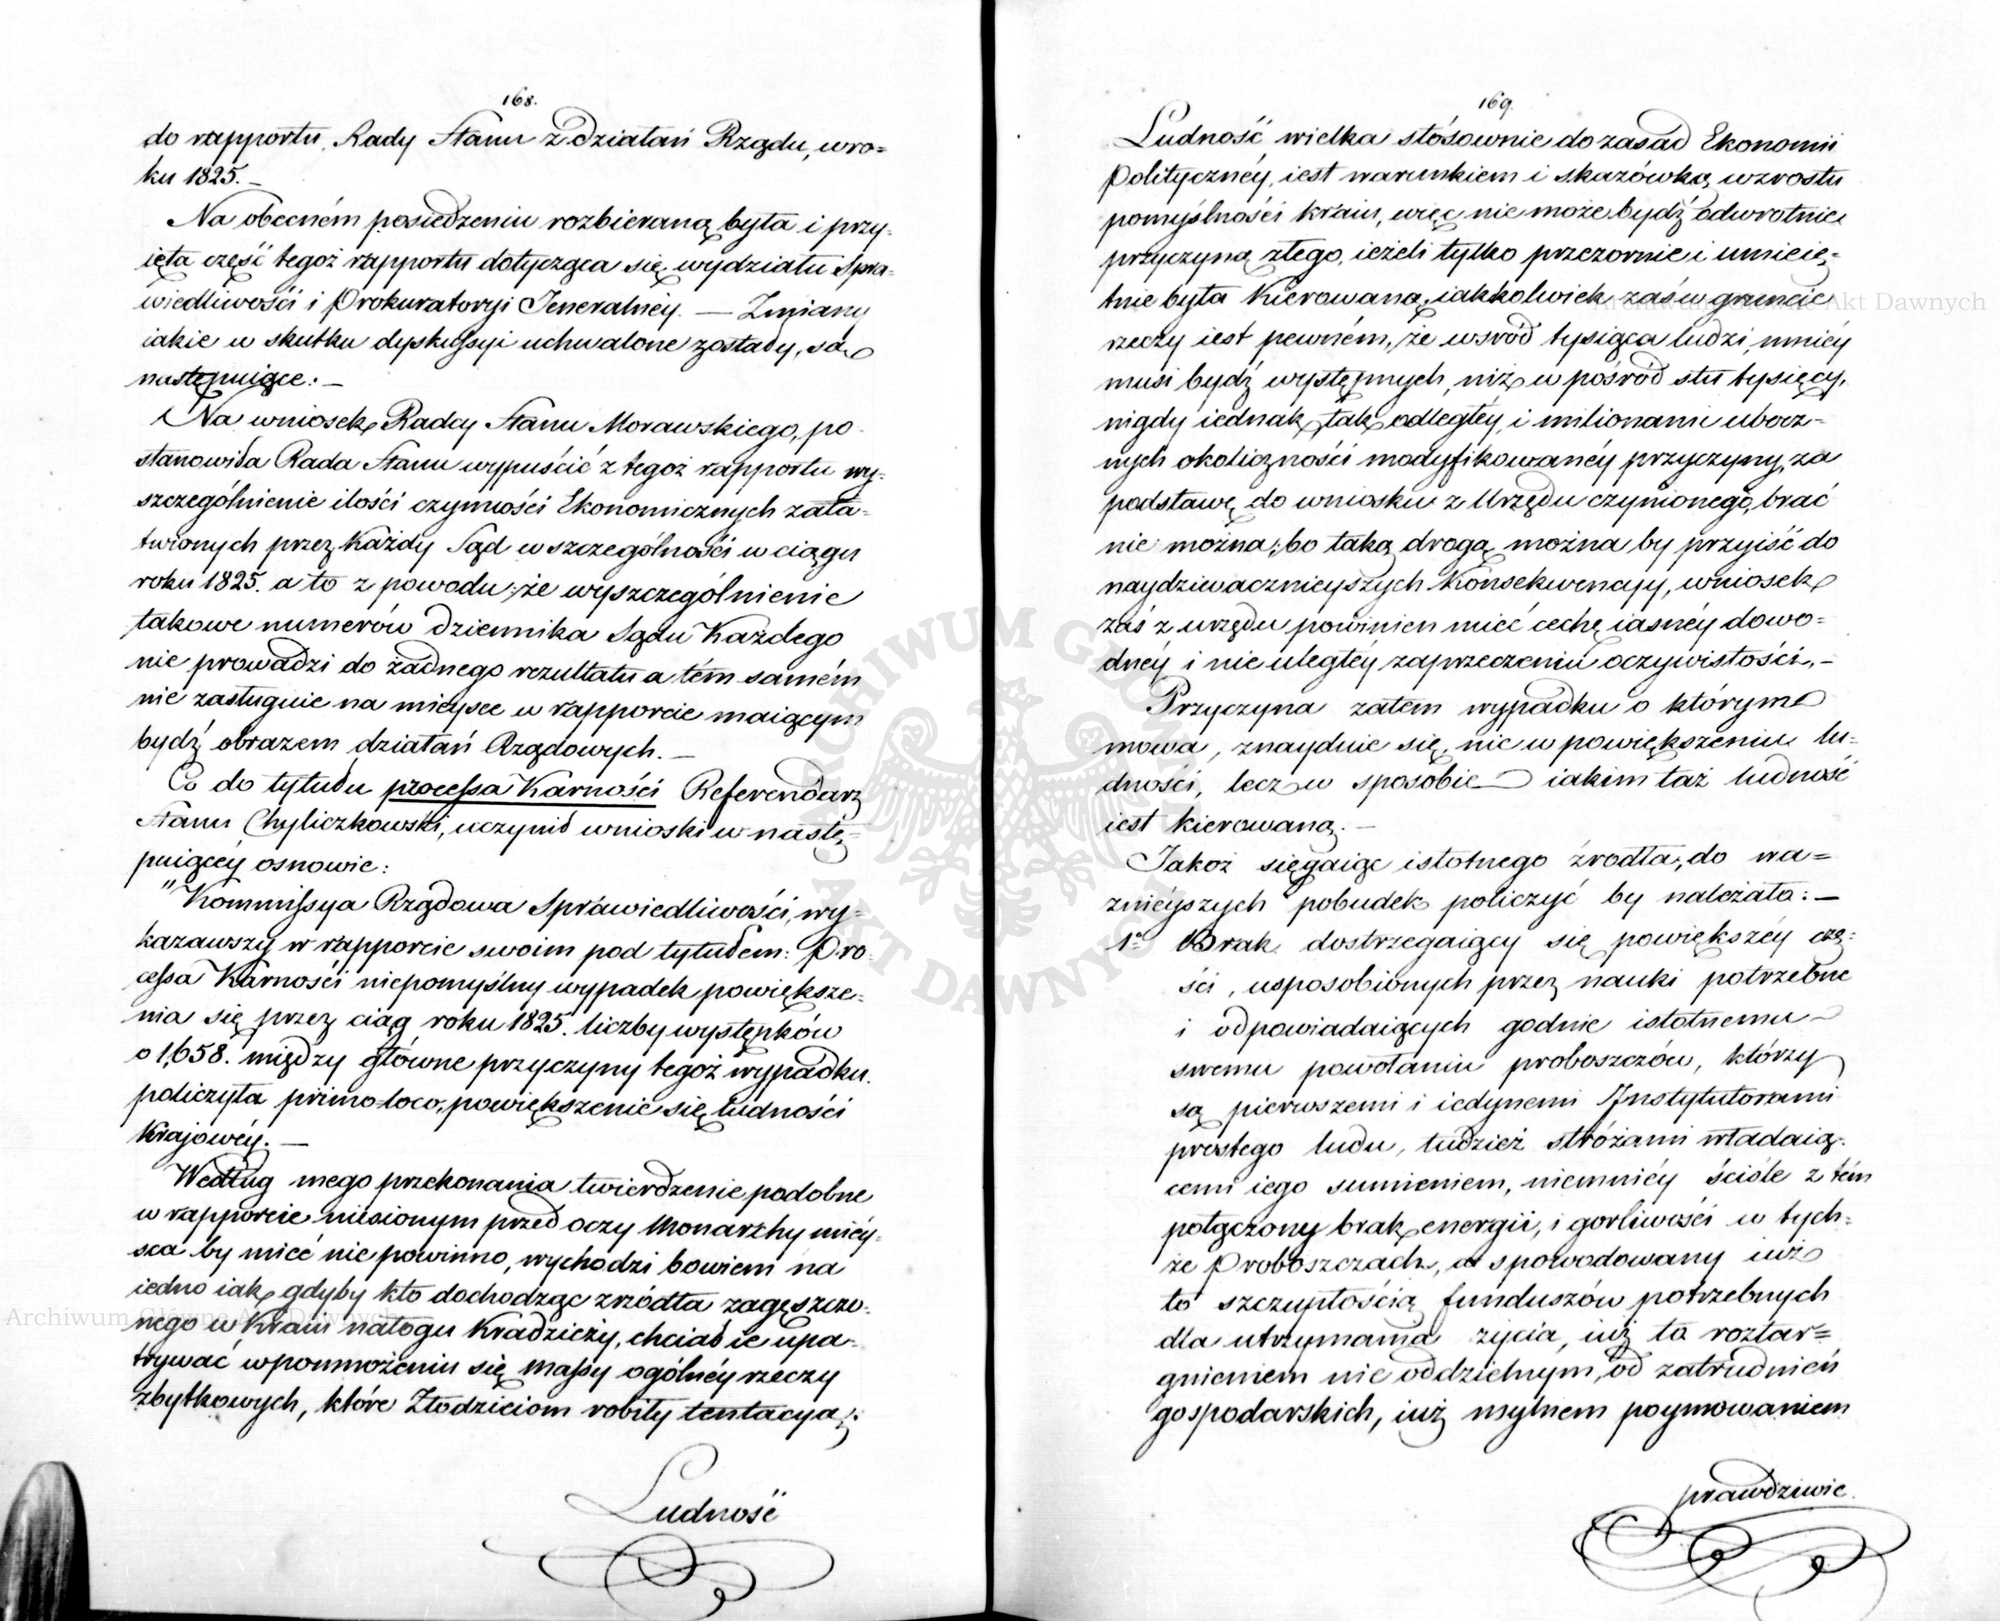 168.
do rapportu Rady Stanu z działań Rządu, w ro=
ku 1825. –
Na obecném posiedzeniu rozbieraną była i przy-
ięta część tegoż rapportu dotycząca się wydziału Spra-
wiedliwości i Prokuratoryi Jeneralnéy. — Zmiany
iakie w skutku dyskussyi uchwalone zostały, są
następuiące: –
Na wniosek Radcy Stanu Morawskiego, po-
stanowiła Rada Stanu wypuścić z tegoż rapportu wy-
szczególnienie ilości czynności Ekonomicznych zała-
twionych przez każdy Sąd w szczególności w ciągu
roku 1825. a to z powodu, że wyszczególnienie
takowe numerów dziennika Sądu każdego
nie prowadzi do żadnego rezultatu a tém samém
nie zasługuie na mieysce w rapporcie maiącym
bydź obrazem działań Rządowych. –
Co do tytułu processa Karności Referendarz
Stanu Chyliczkowski, uczynił wnioski w nastę-
puiącéy osnowie:
"Kommissya Rządowa Sprawiedliwości, wy-
kazawszy w rapporcie swoim pod tytułem: Pro-
cessa Karności niepomyślny wypadek powiększe-
nia się przez ciąg roku 1825. liczby występków
o 1,658. między główne przyczyny tegoż wypadku
policzyła primo loco, powiększenie się ludności
Krajowéy. —
Według mego przekonania twierdzenie podobne
w rapporcie niesionym przed oczy Monarchy miéy-
sca by mieć nie powinno, wychodzi bowiem na
iedno iak gdyby kto dochodząc źródła zagęszczo-
nego w Kraiu nałogu Kradzieży, chciał ie upa-
trywać w pomnożeniu się massy ogólnéy rzeczy
zbytkowych, które Złodzieiom robiły tentacyą;
Ludność
169.
Ludność wielka stósownie do zasad Ekonomii
Politycznéy, iest warunkiem i skazówką wzrostu
pomyślności kraiu, więc nie może bydź odwrotnie
przyczyną złego, ieżeli tylko przezornie i umieię-
tnie była kierowaną; iakkolwiek zaś w gruncie
rzeczy iest pewném, że wsród tysiąca ludzi, mniéy
musi bydź występnych, niż w pośród stu tysięcy,
nigdy iednak tak odległéy, i milionami ubocz-
nych okoliczności modyfikowanéy przyczyny, za
podstawę do wniosku z Urzędu czynionego, brać
nie można; bo taką drogą można by przyiść do
naydziwacznieyszych Konsekwencyy, wniosek
zaś z urzędu powinien mieć cechę iasnéy dowo-
dnéy i nie uległéy zaprzeczeniu oczywistości. –
Przyczyna zatém wypadku o którym
mowa, znayduie się, nie w powiększeniu lu-
dności, lecz w sposobie iakim taż ludność
iest kierowaną. –
Jakoż sięgaiąc istotnego źrodła, do wa=
żniéyszych pobudek policzyć by należało: –
1o Brak dostrzegaiący się powiększéy czę-
ści, usposobionych przez nauki potrzebne
i odpowiadaiących godnie istotnemu
swemu powołaniu proboszczów, którzy
są pierwszemi i iedynemi Instytutorami
prostego ludu, tudzież stróżami władaią-
cemi iego sumieniem, niemniéy ściśle z tém
połączony brak energii, i gorliwości w tych-
że Proboszczach, a spowodowany iuż
to szczupłością funduszów potrzebnych
dla utrzymania życia, iuż to roztar=
gnieniem nieoddzielnym, od zatrudnień
gospodarskich, iuż mylnem poymowaniem
prawdziwie.
Archiwum Główne Akt Dawnych
Archiwum Główne Akt Dawnych
ARCHIWUM GŁÓWNE AKT DAWNYCH